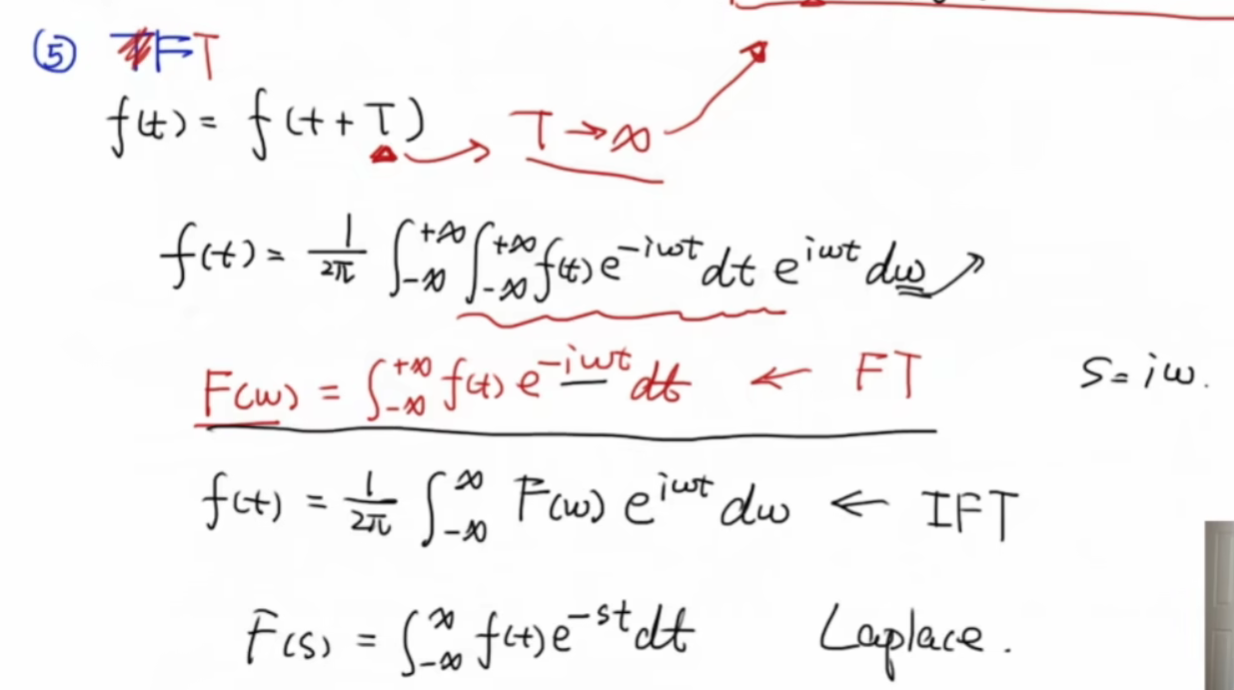 ⑤ FT
f(t) = f(t + T) → T → ∞
f(t) = 1/2π ∫_{-∞}^{+∞} ∫_{-∞}^{+∞} f(t) e^{-iωt} dt e^{iωt} dω
F(ω) = ∫_{-∞}^{+∞} f(t) e^{-iωt} dt ← FT S = iω.
f(t) = 1/2π ∫_{-∞}^{∞} F(ω) e^{iωt} dω ← IFT
F(s) = ∫_{-∞}^{∞} f(t) e^{-st} dt Laplace.